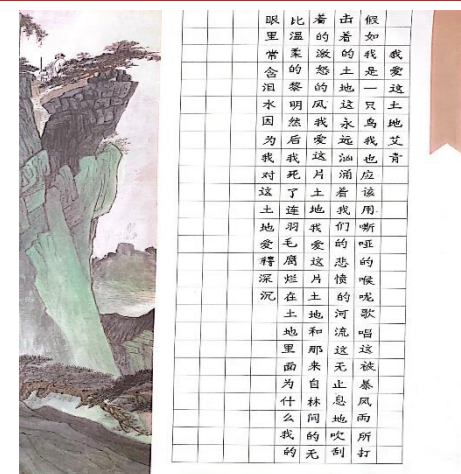 我爱这土地艾青
假如我是一只鸟我也应该用嘶哑的喉咙歌唱这被暴风雨所打
击着的土地这永远汹涌着我们的悲愤的河流这无止息地吹刮
着的激怒的风我爱这片土地我爱这片土地和那来自林间的无
比温柔的黎明然后我死了连羽毛腐烂在土地里面为什么我的
眼里常含泪水因为我对这土地爱得深沉